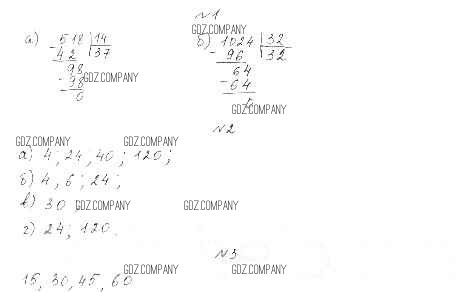 №1
GDZ.COMPANY GDZ.COMPANY
а) 518 | 14 б) 1024 | 32
- 42 37 - 96 32
98 64
- 98 GDZ.COMPANY - 64
0 0
GDZ.COMPANY
№2
GDZ.COMPANY GDZ.COMPANY
а) 4; 24; 40; 120;
б) 4, 6; 24;
в) 30; GDZ.COMPANY GDZ.COMPANY
г) 24; 120.
№3
GDZ.COMPANY GDZ.COMPANY
15, 30, 45, 60